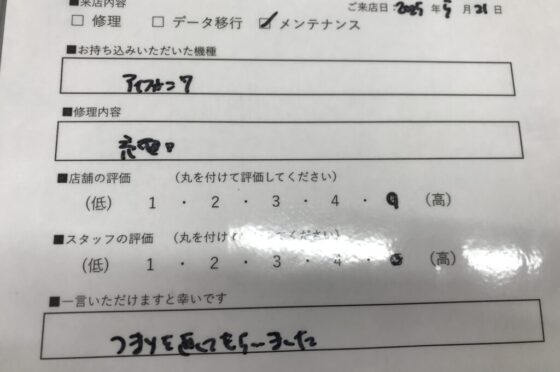 ■来店内容
ご来店日:2025年5月21日
□ 修理 □ データ移行 ☑ メンテナンス
■お持ち込みいただいた機種
アイフォン7
■修理内容
充電口
■店舗の評価 (丸を付けて評価してください)
(低) 1 ・ 2 ・ 3 ・ 4 ・ (高)
■スタッフの評価 (丸を付けてください)
(低) 1 ・ 2 ・ 3 ・ 4 ・ (高)
■一言いただけますと幸いです
つまりを直してもらいました